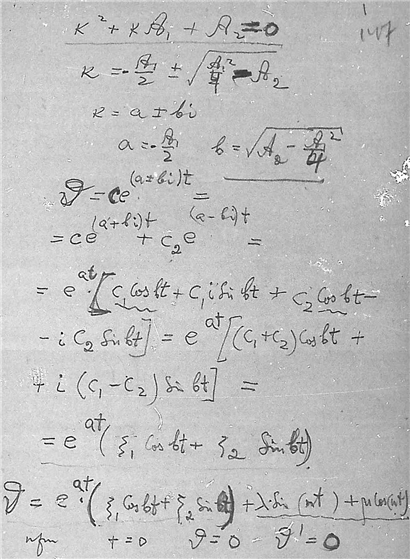 κ² + κA₁ + A₂ = 0
κ = -A₁/2 ± √(A₁²/4 - A₂)
κ = a ± bi
a = -A₁/2   b = √(A₂ - A²/4)
ϑ = ce^(a±bi)t =
= ce^(a+bi)t + c₂e^(a-bi)t =
= e^at · [c₁ Cos bt + c₁ i Sin bt + c₂ Cos bt -
- i c₂ Sin bt] = e^at [(c₁+c₂) Cos bt +
+ i (c₁ - c₂) Sin bt] =
= e^at (ξ₁ Cos bt + ξ₂ Sin bt)
ϑ = e^at · (ξ₁ Cos bt + ξ₂ Sin bt) + λ·Sin (mt) + μ Cos (mt)
при t=0 ϑ=0 ϑ'=0